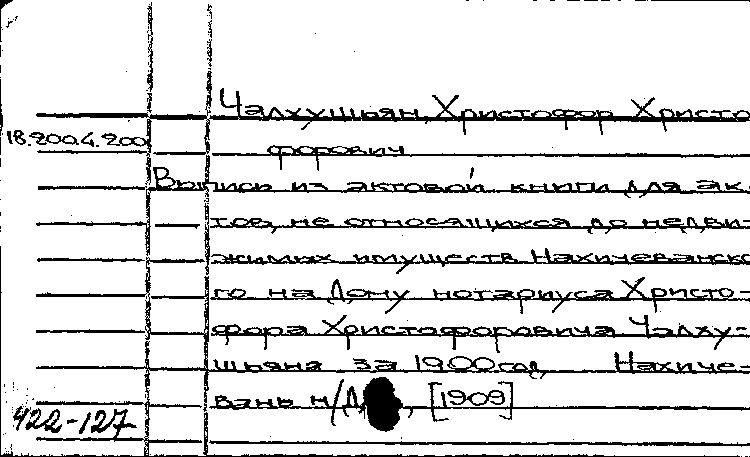 Чалхушьян, Христофор Христо
18.200.4.200
форович
Выпись из актовой книги для ак-
тов, не относящихся до недви-
жимых имуществ Нахичеванско
го на Дону нотариуса Христо-
фора Христофоровича Чалху-
шьяна за 1900 год, Нахиче-
вань н/Д, [1909]
422-127